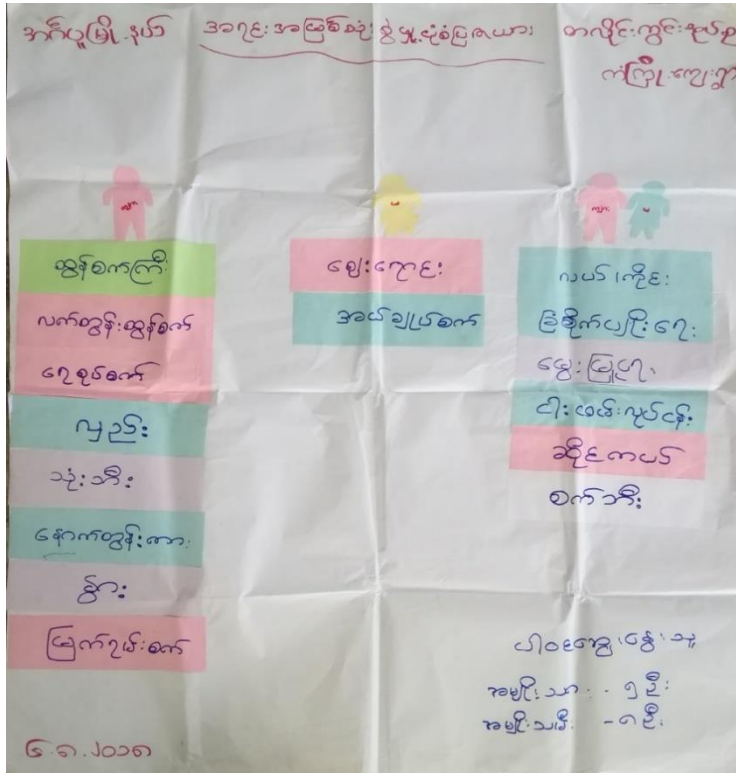 အင်္ဂပူမြို့နယ်
အရင်းအမြစ်သုံးစွဲမှုပုံစံပြဇယား
တလိုင်းကွင်း
ကံကြီးကျေးရွာ
ကျား
မ
ကျား
မ
ထွန်စက်ကြီး
လက်တွန်းထွန်စက်
ရေစုပ်စက်
လှည်း
သုံးဘီး
နောက်တွဲန်းကား
နွား
မြက်ရိတ်စက်
ဈေးရောင်း
အပ်ချုပ်စက်
လယ်/ကိုင်း
ခြံစိုက်ပျိုးရေး
မွေးမြူရေး
ငါးဖမ်းလုပ်ငန်း
ဆိုင်ကယ်
စက်ဘီး
ပါဝင်ဆွေးနွေးသူ
အမျိုးသား - ၅ ဦး
အမျိုးသမီး - ၈ ဦး
၆.၈.၂၀၁၈